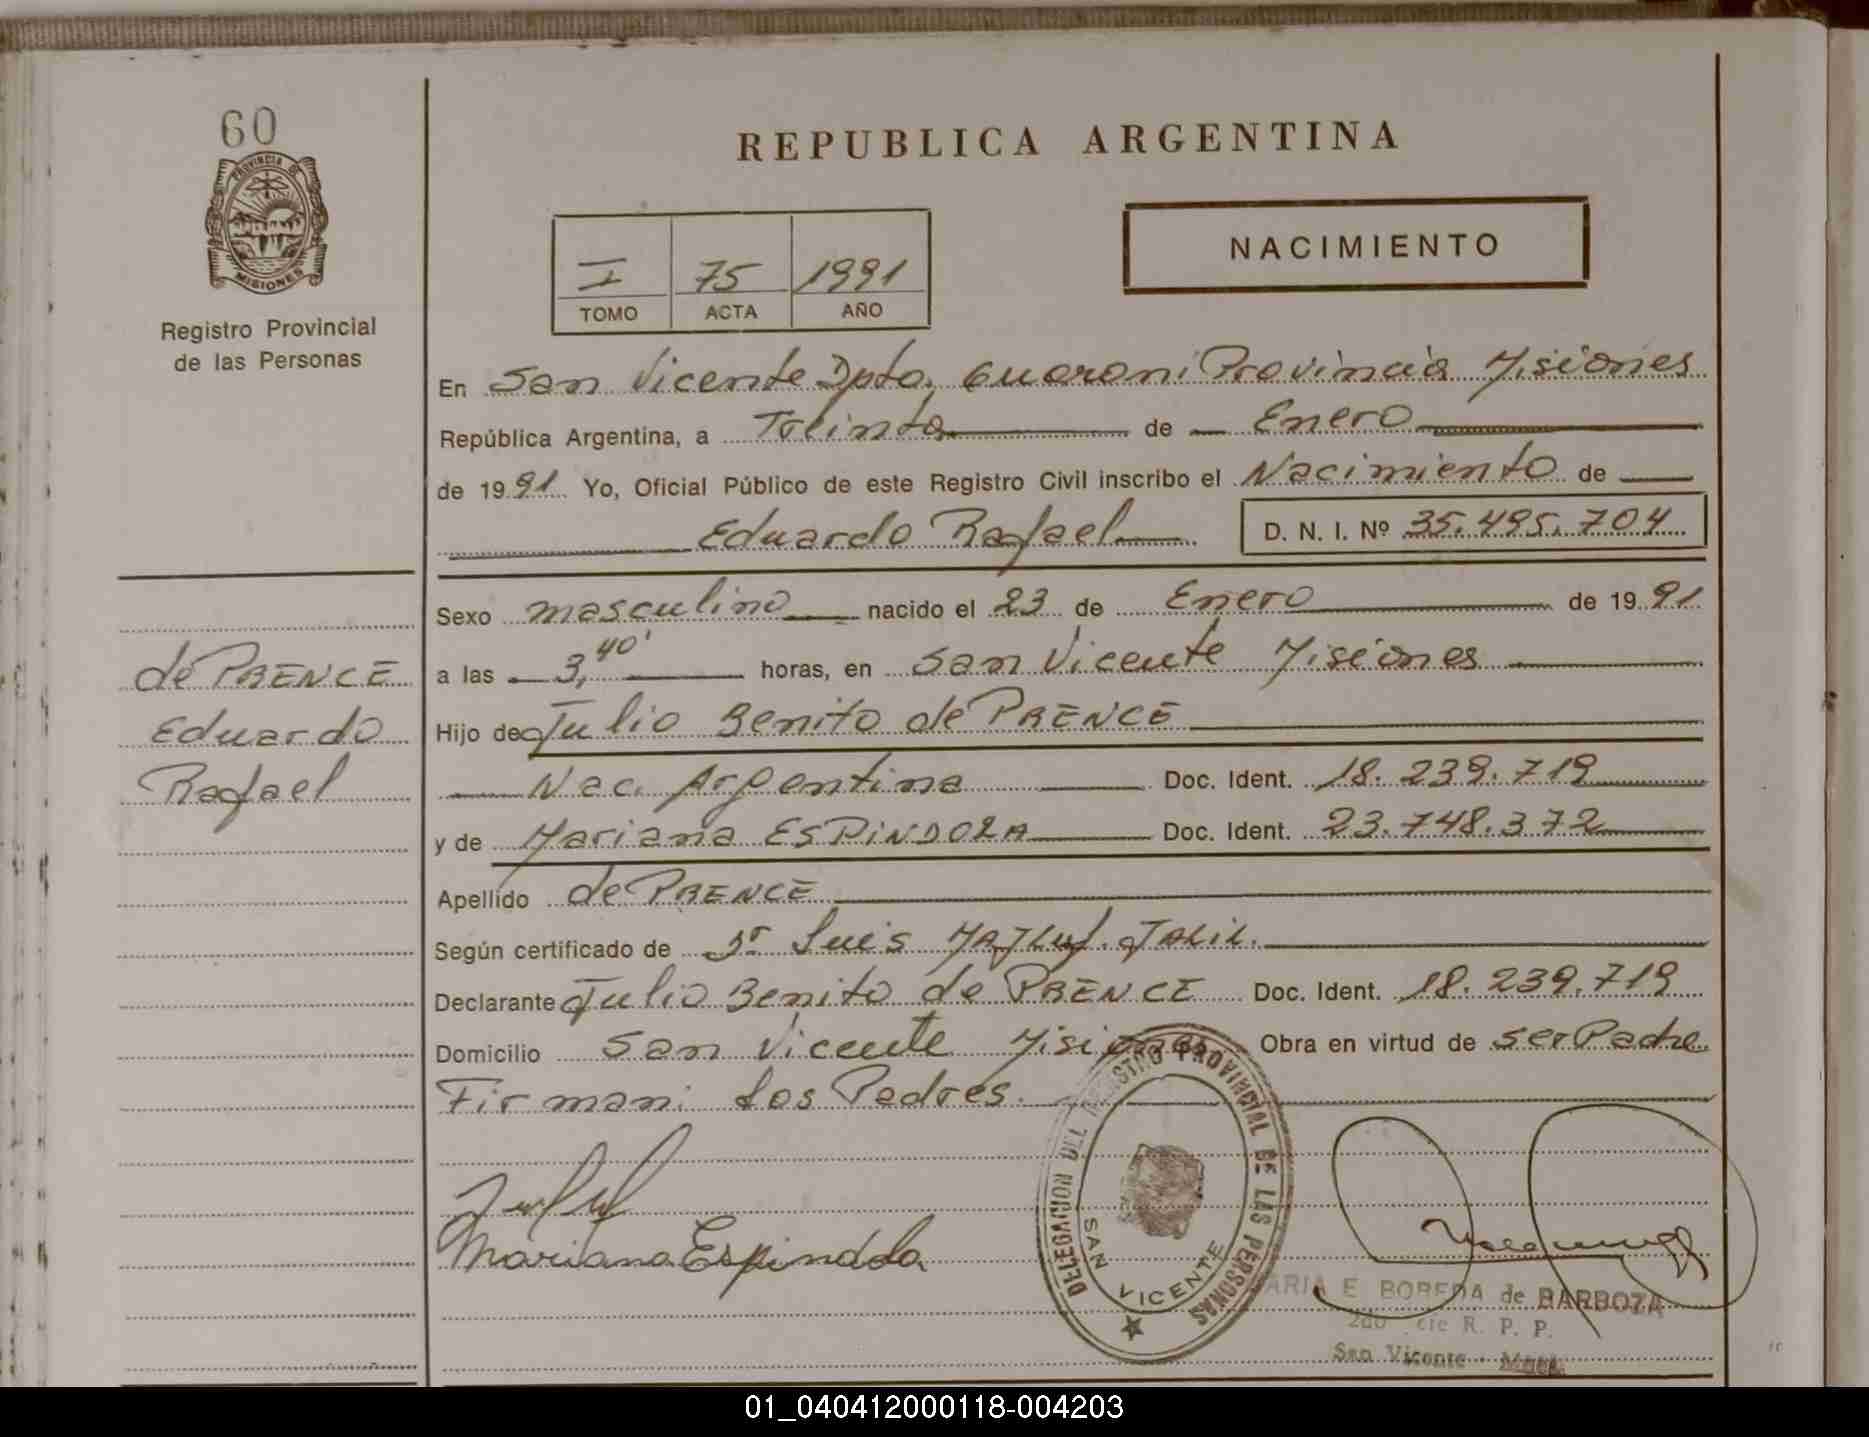 60
PROVINCIA DE
MISIONES
Registro Provincial
de las Personas
REPUBLICA ARGENTINA
NACIMIENTO
I 75 1991
TOMO ACTA AÑO
En San Vicente Dpto. Guarani Provincia Misiones
República Argentina, a Treinta de Enero
de 1991 Yo, Oficial Público de este Registro Civil inscribo el Nacimiento de
Eduardo Rafael D. N. I. Nº 35.495.704
Sexo masculino nacido el 23 de Enero de 1991
de PRENCE
Eduardo
Rafael
a las 3,40' horas, en San Vicente Misiones
Hijo de Julio Benito de PRENCE
Nac. Argentina Doc. Ident. 18.239.719
y de Mariana ESPINDOLA Doc. Ident. 23.748.372
Apellido de PRENCE
Según certificado de Dr Luis JALIL.
Declarante Julio Benito de PRENCE Doc. Ident. 18.239.719
Domicilio San Vicente Misiones Obra en virtud de ser Padre
Firman: Los Padres.
Mariana Espindola
DELEGACION DEL REGISTRO PROVINCIAL DE LAS PERSONAS
SAN VICENTE
MARIA E. de BARBOZA
R. P. P.
San Vicente - Mnes.
01_040412000118-004203